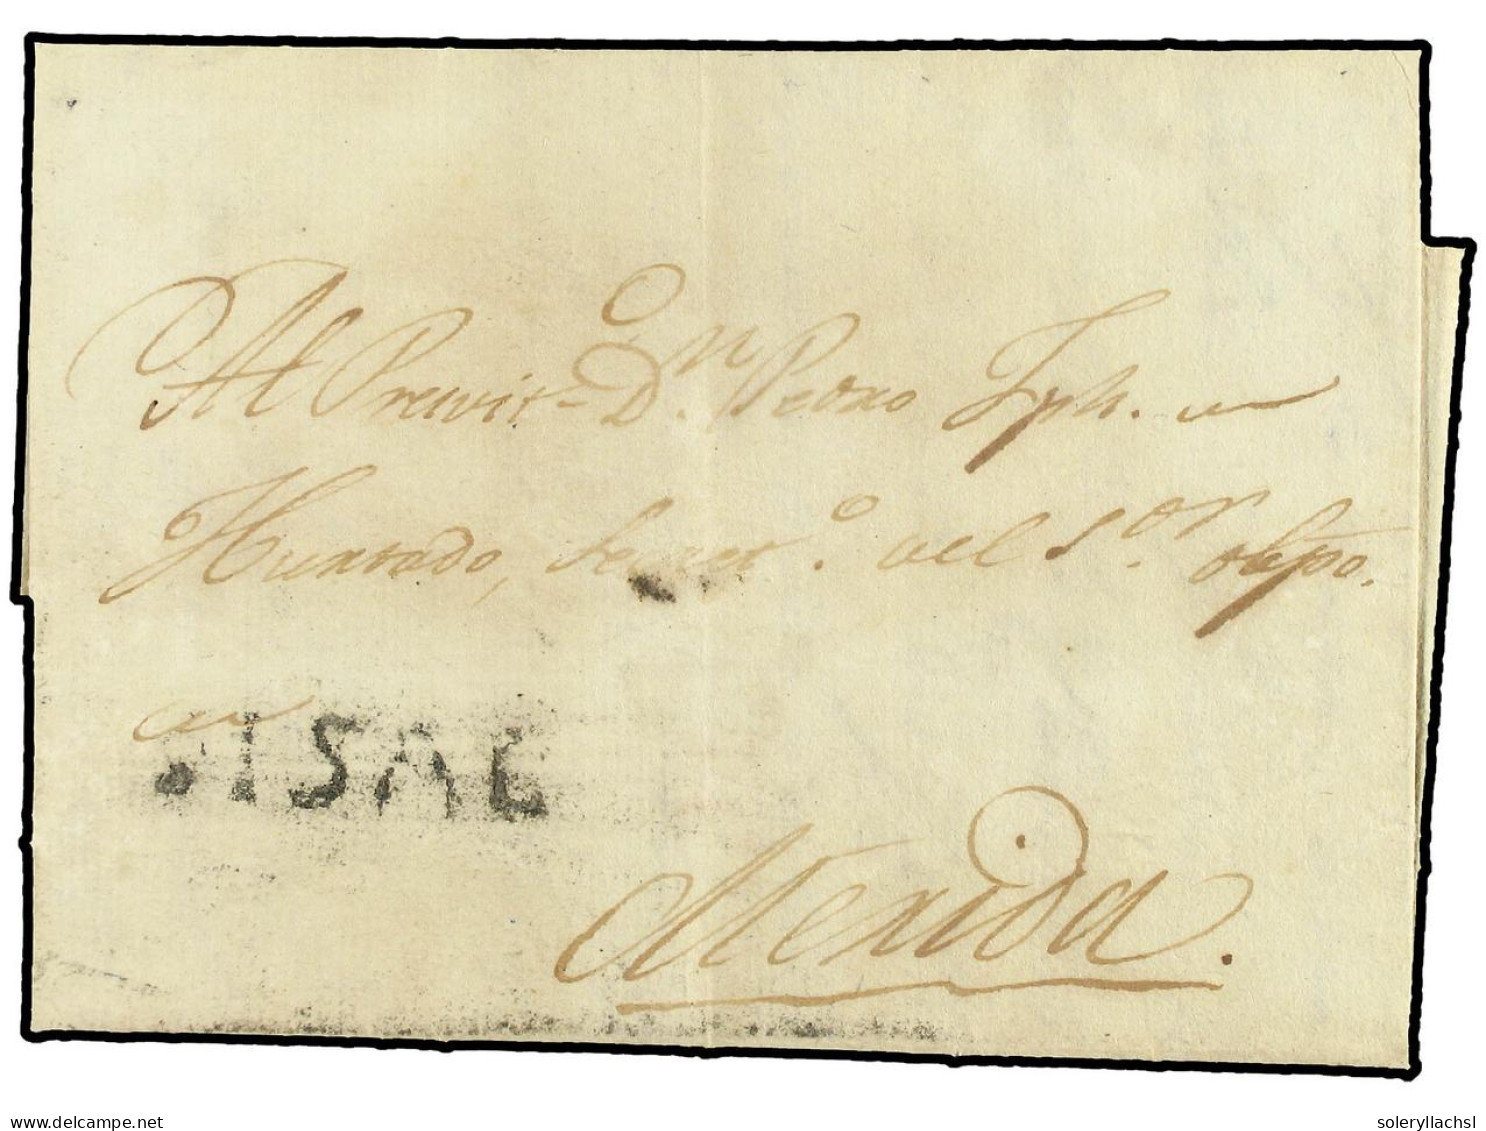 Al Presvit.º Dn. Pedro Jph.
Hurtado, Secret.º del S.or Obpo.
en
SISAL
Merida.
delcampe.net
soleryllachsl